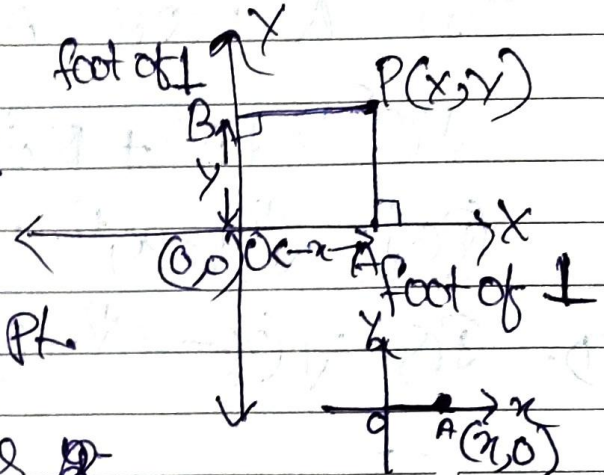 Y
foot of ⊥
P(x,y)
B
y
X
(0,0) O <-x-> A
foot of ⊥
Pt.
Y
O A x
(x,0)
&